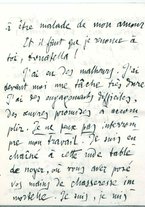 à être malade de mon amour
Et il faut que je renonce à
toi, Donatella !
J'ai eu des malheurs. J'ai
devant moi une tâche très dure
J'ai des engagements difficiles,
des œuvres promises à accom-
plir. Je ne peux pas interrom-
pre mon travail. Je suis en-
chaîné à cette rude table
de noyer, où vous avez posé
vos mains de chasseresse im-
mortelle. Je suis, je suis